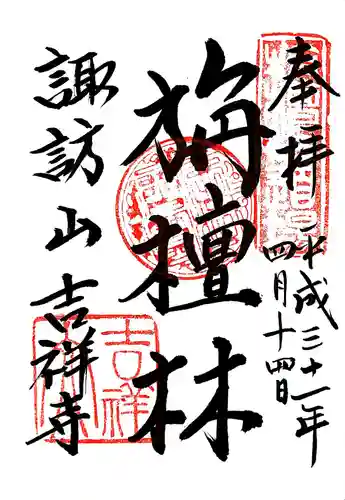 奉拝
平成三十一年
四月十四日
旃檀林
諏訪山吉祥寺